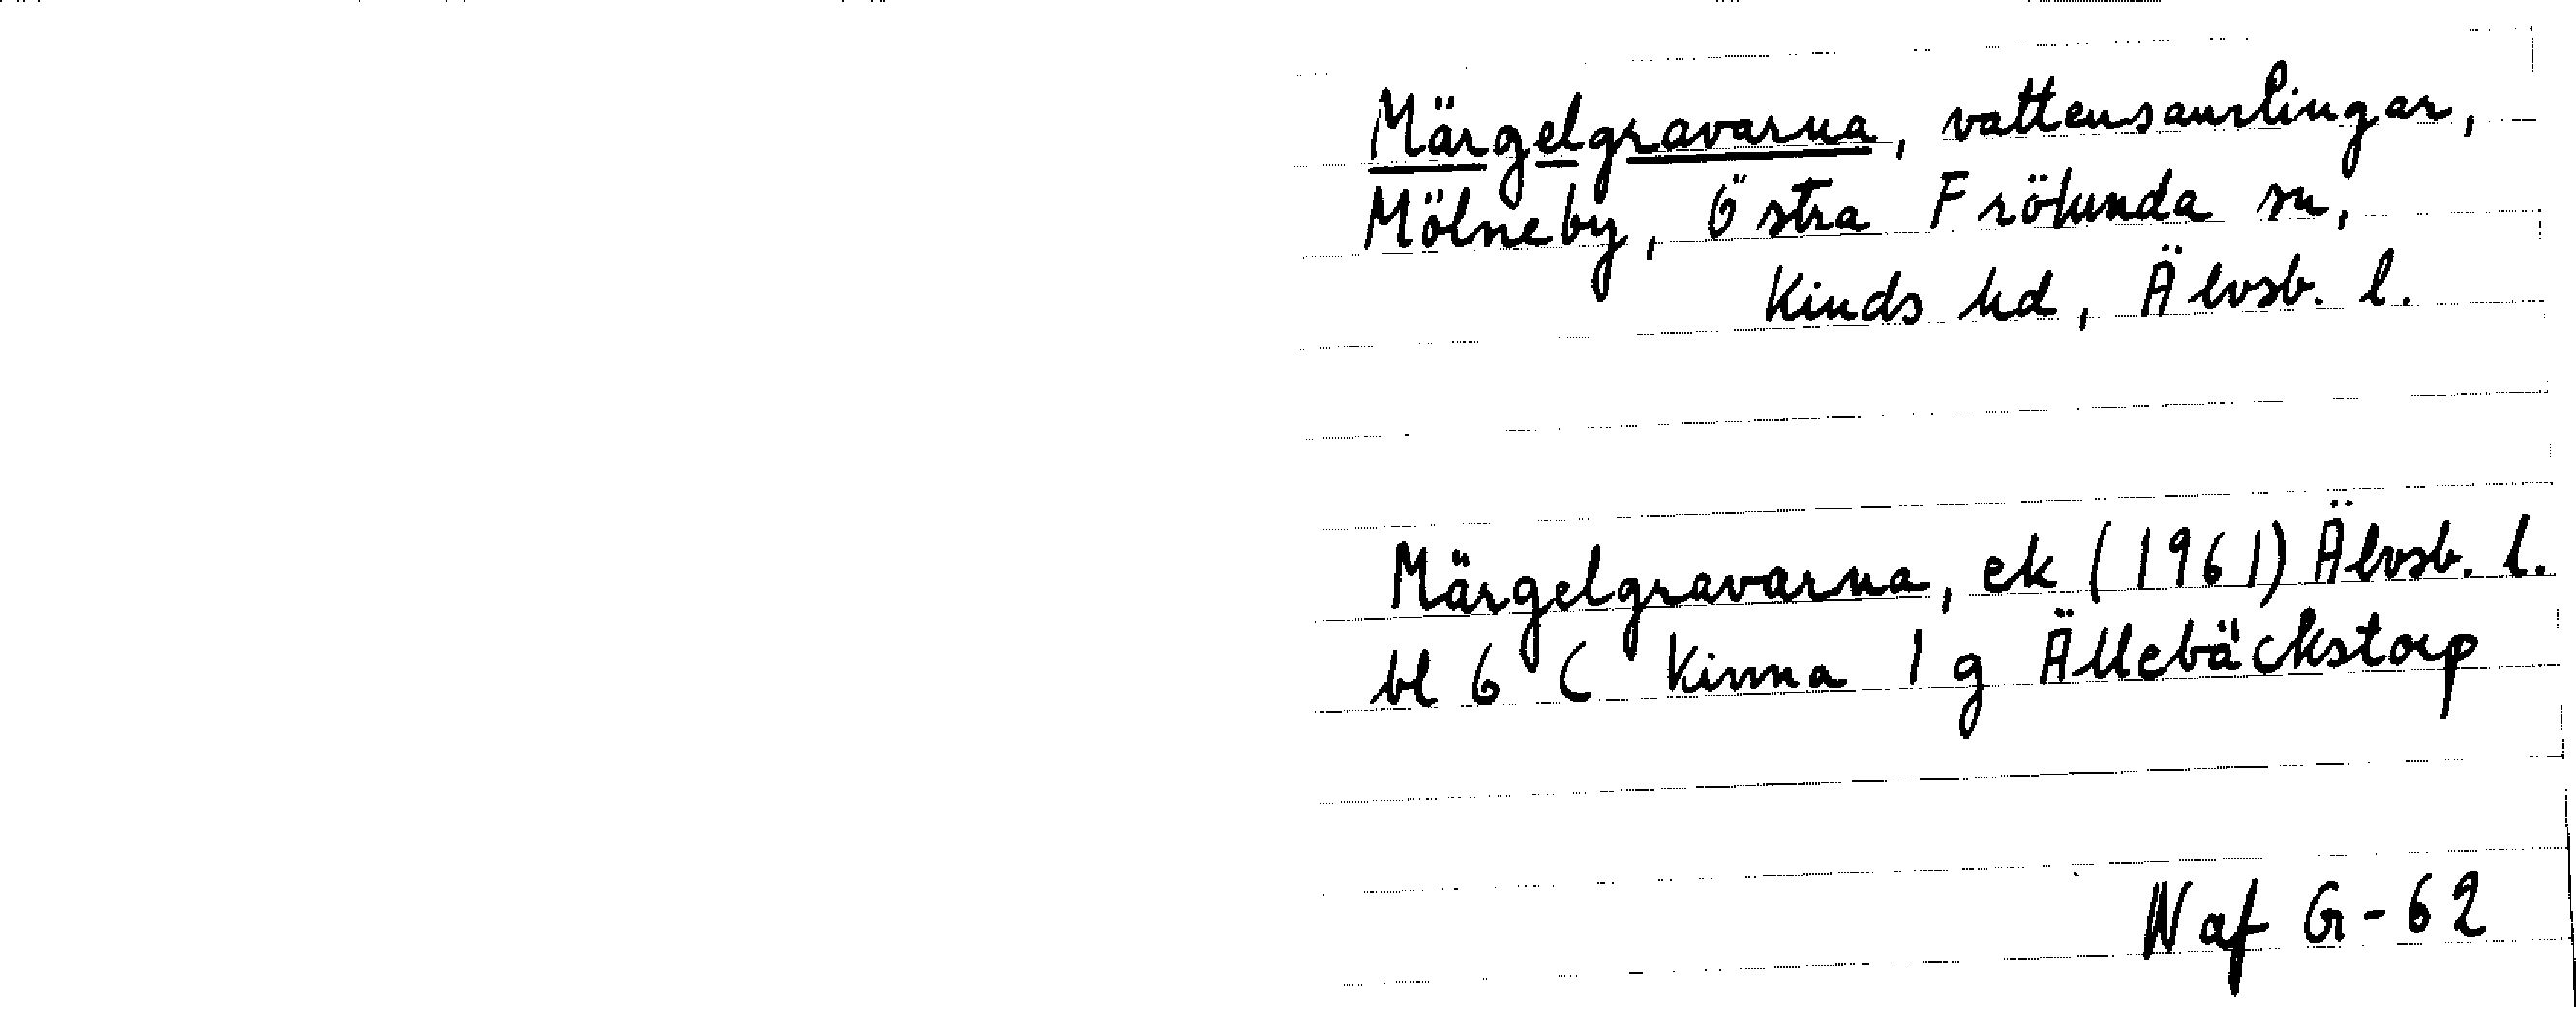 Märgelgravarna, vattensamlingar,
Mölneby, Östra Frölunda sn,
Kinds hd, Älvsb. l.
Märgelgravarna, ek (1961) Älvsb. l.
bl 6 C Kinna 1 g Ällebäckstorp
N af G-62